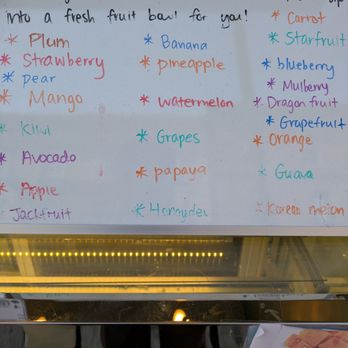 into a fresh fruit bowl for you!
* Plum
* Strawberry
* pear
* Mango
* Kiwi
* Avocado
* Apple
Jackfruit
* Banana
* pineapple
* watermelon
* Grapes
* papaya
* Carrot
* Starfruit
* blueberry
* Mulberry
* Dragon fruit
* Grapefruit
* Orange
* Guava
* Korean melon